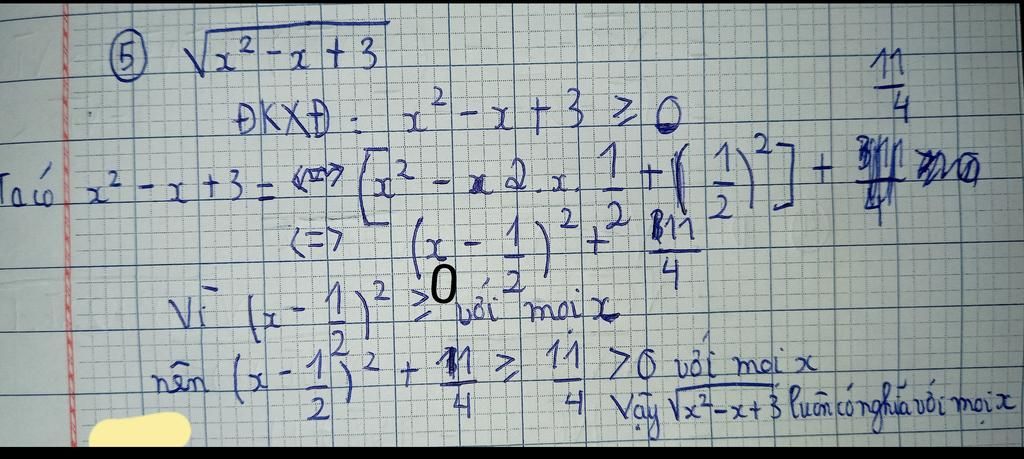 ⑤ √(x² - x + 3)
ĐKXĐ: x² - x + 3 ≥ 0
11/4
Ta có x² - x + 3 = <=> [x² - 2.x.1/2 + (1/2)²] + 11/4
<=> (x - 1/2)² + 11/4
Vì (x - 1/2)² ≥ 0 với mọi x
nên (x - 1/2)² + 11/4 ≥ 11/4 > 0 với mọi x
Vậy √(x² - x + 3) luôn có nghĩa với mọi x